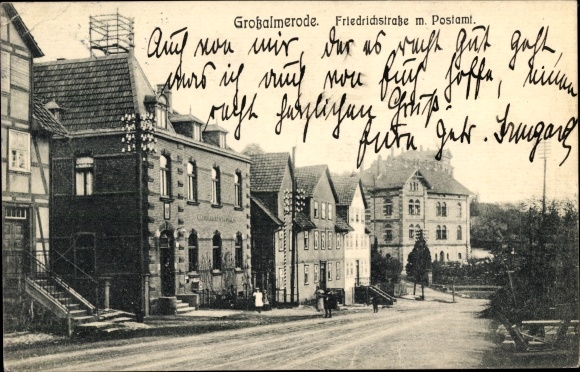 Großalmerode. Friedrichstraße m. Postamt.
Auch von mir, der es recht gut geht,
was ich auch von Euch hoffe, einen
recht herzlichen Gruß.
Eure getr. Irmgard